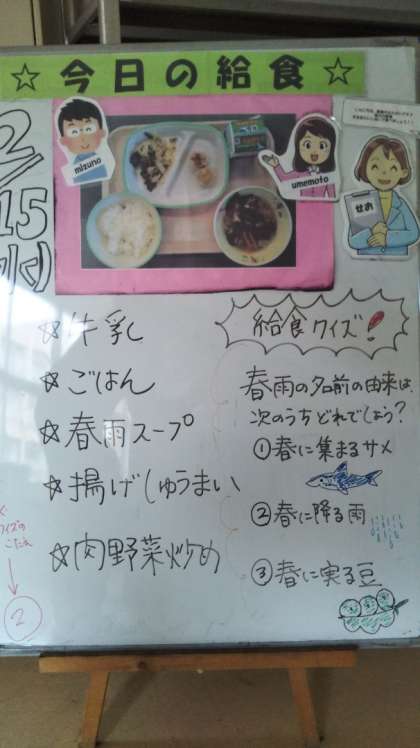 ☆今日の給食☆
2/15
(水)
mizuno
umemoto
せお
☆牛乳
☆ごはん
☆春雨スープ
☆揚げしゅうまい
☆肉野菜炒め
給食クイズ!
春雨の名前の由来は、
次のうちどれでしょう?
①春に集まるサメ
②春に降る雨
③春に実る豆
クイズの
こたえ
↓
②